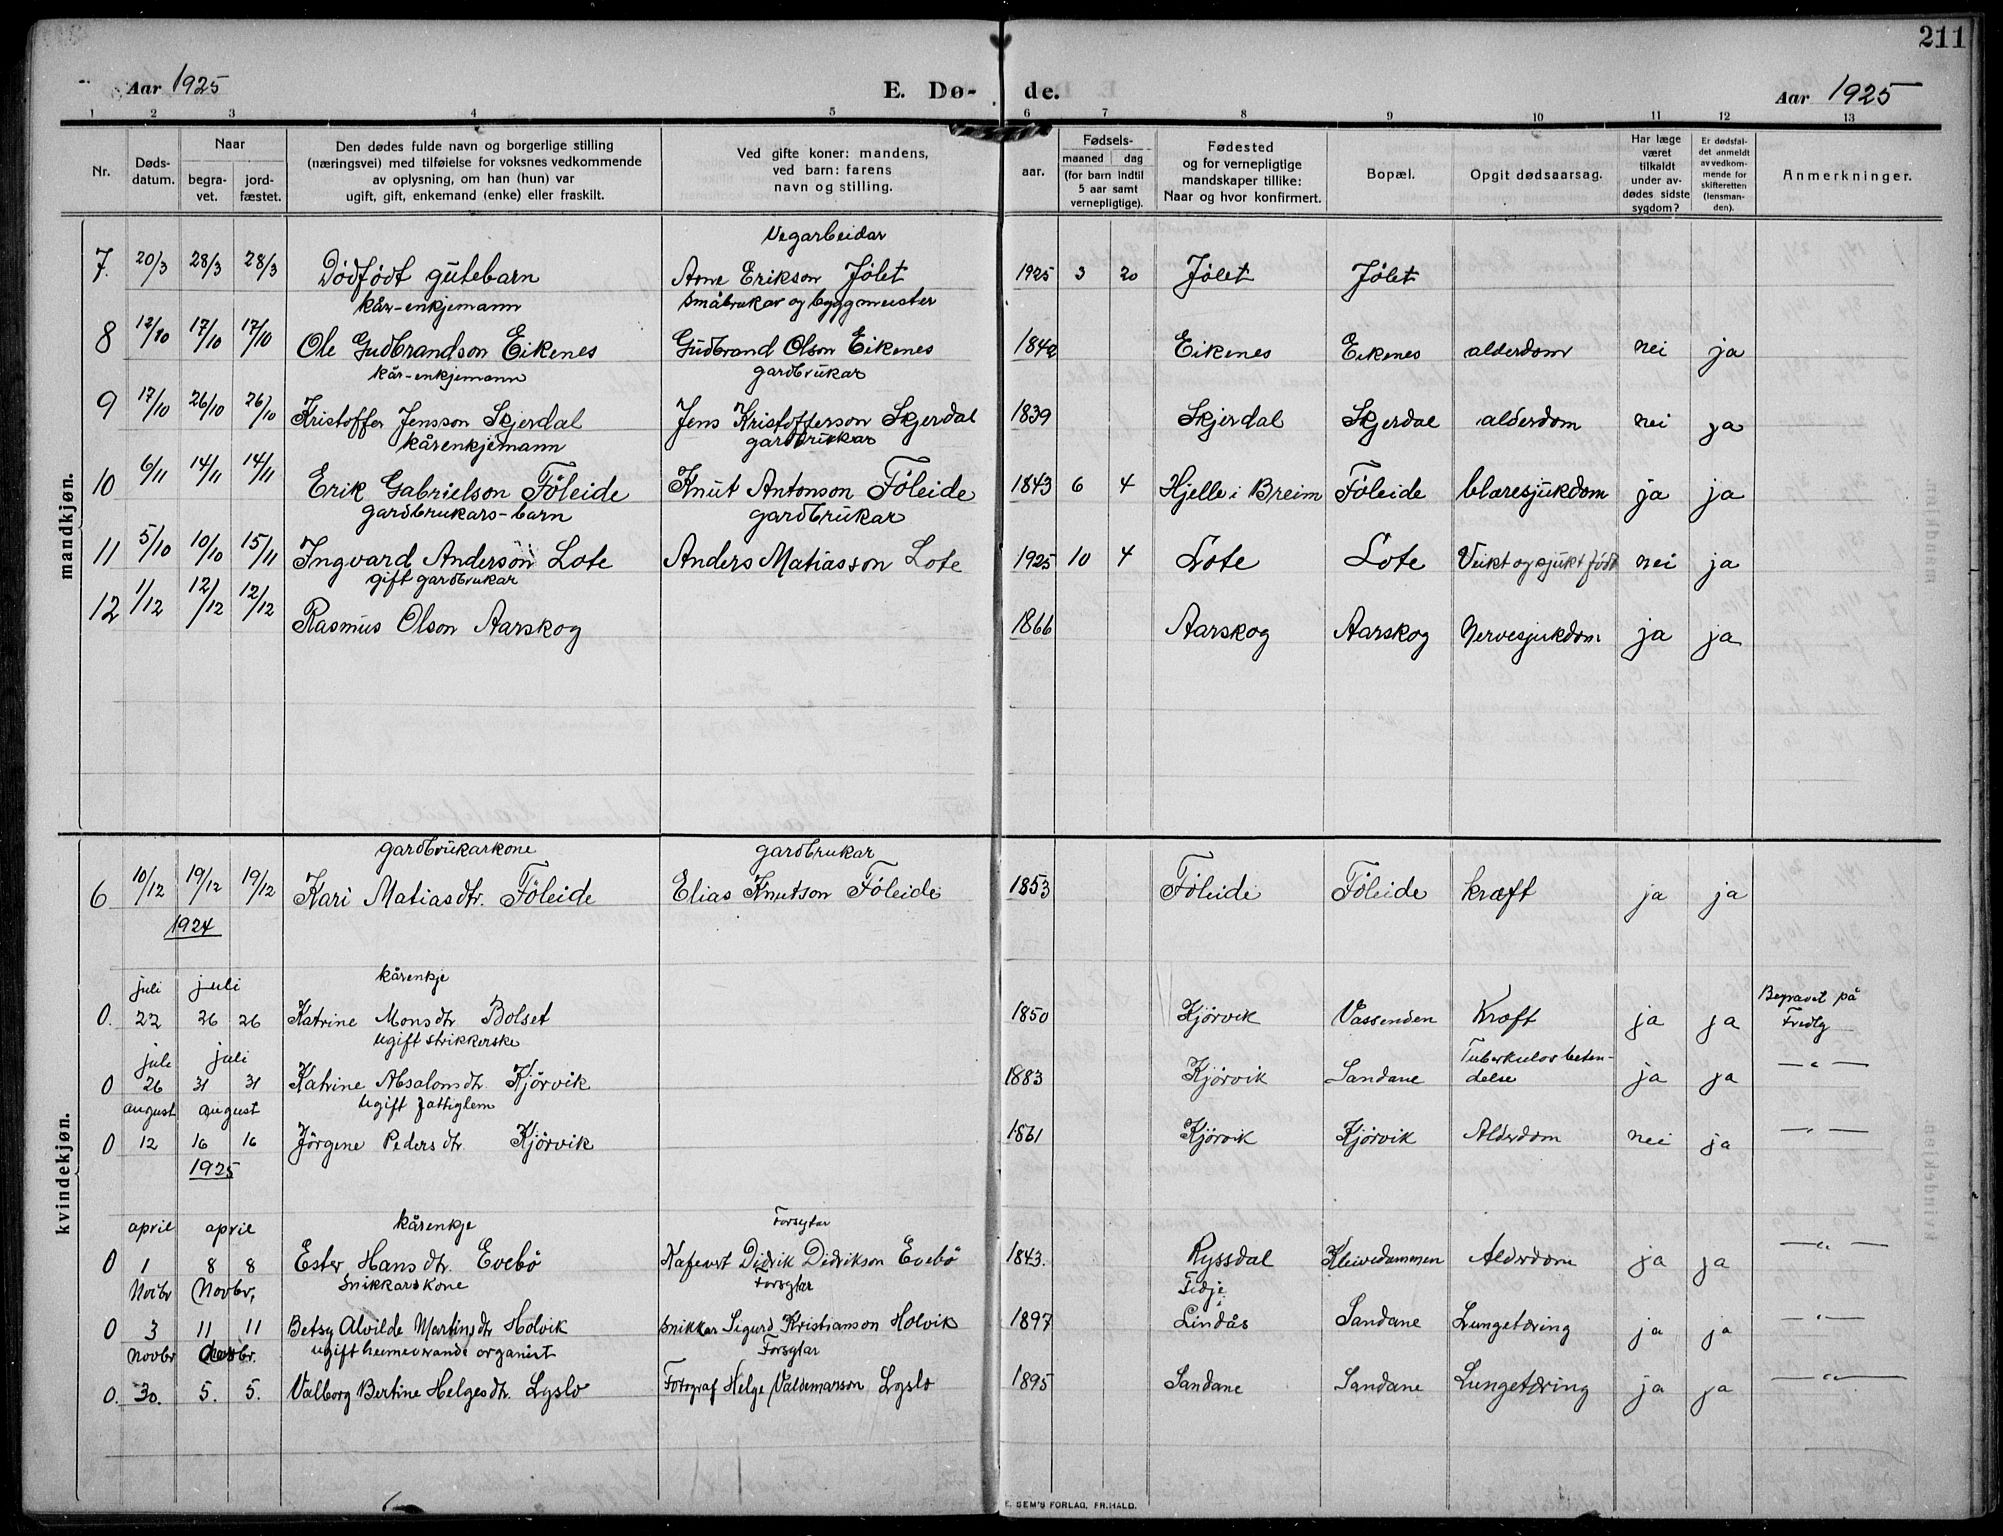 211
Aar 1925 E. Dø- de. Aar 1925
1 2 3 4 5 6 7 8 9 10 11 12 13
Nr. Døds-datum. Naar begra-vet. jord-fæstet. Den dødes fulde navn og borgerlige stilling (næringsvei) med tilføielse for voksnes vedkommende av oplysning, om han (hun) var ugift, gift, enkemand (enke) eller fraskilt. Ved gifte koner: mandens, ved barn: farens navn og stilling. Fødsels- aar. maaned dag (for barn indtil 5 aar samt vernepligtige). Fødested og for vernepligtige mandskaper tillike: Naar og hvor konfirmert. Bopæl. Opgit dødsaarsag. Har læge været tilkaldt under av-dødes sidste sygdom? Er dødsfal-det anmeldt av vedkom-mende for skifteretten (lensman-den). Anmerkninger.
mandkjøn.
Vegarbeidar
7. 20/3 28/3 28/3 Dødfødt gutebarn Arne Erikson Jølet 1925 3 20 Jølet Jølet
kår-enkjemann småbrukar og byggmeister
8 12/10 17/10 17/10 Ole Gudbrandson Eikenes Gudbrand Olson Eikenes 1842 Eikenes Eikenes alderdom nei ja
kår-enkjemann gardbrukar
9 17/10 26/10 26/10 Kristoffer Jensson Skjerdal Jens Kristofferson Skjerdal 1839 Skjerdal Skjerdal alderdom nei ja
kårenkjemann gardbrukar
10 6/11 14/11 14/11 Erik Gabrielson Føleide Knut Antonson Føleide 1843 6 4 Hjelle i Breim Føleide blæresjukdom ja ja
gardbrukars-barn gardbrukar
11 5/10 10/10 15/11 Ingvard Anderson Lote Anders Matiasson Lote 1925 10 4 Lote Lote Veikt og sjukt født nei ja
gift gardbrukar
12 1/12 12/12 12/12 Rasmus Olson Aarskog 1866 Aarskog Aarskog Nervesjukdom ja ja
kvindekjøn.
gardbrukarkone gardbrukar
6 10/12 19/12 19/12 Kari Matiasdtr. Føleide Elias Knutson Føleide 1853 Føleide Føleide kræft ja ja
1924
juli juli kårenkje Begravet på
0. 22 26 26 Katrine Monsdtr Bolset 1850 Kjørvik Vassenden Kræft ja ja Fredly
juli juli ugift strikkerske Tuberkuløs beten-
0 26 31 31 Katrine Absalonsdtr. Kjørvik 1883 Kjørvik Sandane delse ja ja — " —
august august ugift fattiglem
0 12 16 16 Jørgene Pedersdtr. Kjørvik 1861 Kjørvik Kjørvik Alderdom nei ja — " —
1925
april april kårenkje Forsytar
0 1 8 8 Ester Hansdtr. Evebø Didrik Didrikson Evebø 1843. Ryssdal Kleivedammen Alderdom ja ja — " —
Novbr Novbr, Snikkarskone Forsytar
0 3 11 11 Betsy Alvilde Martinsdtr Holvik snikkar Sigurd Kristianson Holvik 1897 Lindås Sandane Lungetæring ja ja — " —
Novbr ugift heimeverande organist Forsytar
0. 30. 5. 5. Valborg Bertine Helgesdtr. Lyslo Fotograf Helge Valdemarson Lyslo 1895 Sandane Sandane Lungetæring ja ja — " —
E. SEM'S FORLAG, FR.HALD.